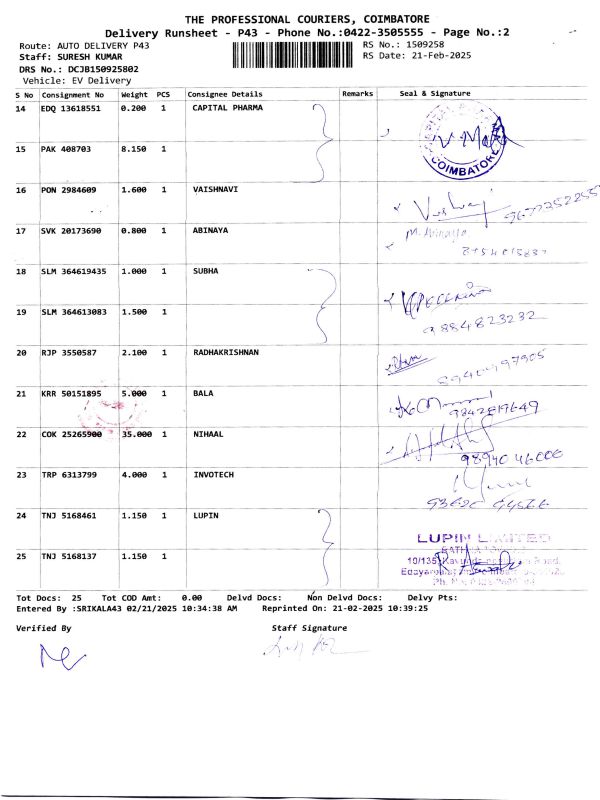 THE PROFESSIONAL COURIERS, COIMBATORE
Delivery Runsheet - P43 - Phone No.:0422-3505555 - Page No.:2
Route: AUTO DELIVERY P43 RS No.: 1509258
Staff: SURESH KUMAR RS Date: 21-Feb-2025
DRS No.: DCJB150925802
Vehicle: EV Delivery
S No Consignment No Weight PCS Consignee Details Remarks Seal & Signature
14 EDQ 13618551 0.200 1 CAPITAL PHARMA
COIMBATORE
15 PAK 408703 8.150 1
16 PON 2984609 1.600 1 VAISHNAVI
9677252255
17 SVK 20173690 0.800 1 ABINAYA M. Abinaya
18 SLM 364619435 1.000 1 SUBHA
19 SLM 364613083 1.500 1
9884823232
20 RJP 3550587 2.100 1 RADHAKRISHNAN
8940497905
21 KRR 50151895 5.000 1 BALA
9842819649
22 COK 25265900 35.000 1 NIHAAL
98940 46000
23 TRP 6313799 4.000 1 INVOTECH
24 TNJ 5168461 1.150 1 LUPIN
LUPIN LIMITED
25 TNJ 5168137 1.150 1
10/135
Tot Docs: 25 Tot COD Amt: 0.00 Delvd Docs: Non Delvd Docs: Delvy Pts:
Entered By :SRIKALA43 02/21/2025 10:34:38 AM Reprinted On: 21-02-2025 10:39:25
Verified By Staff Signature